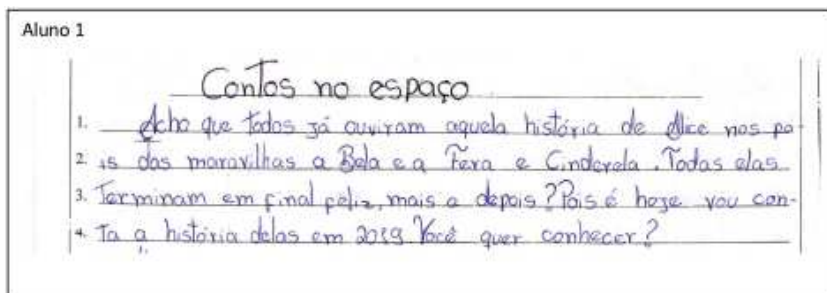 Aluno 1
Contos no espaço
1. Acho que todos já ouviram aquela história de Alice nos pa-
2. is das maravilhas a Bela e a Fera e Cinderela. Todas elas
3. Terminam em final feliz, mais e depois? Pois é hoje vou con-
4. Ta a história delas em 2019 Você quer conhecer?